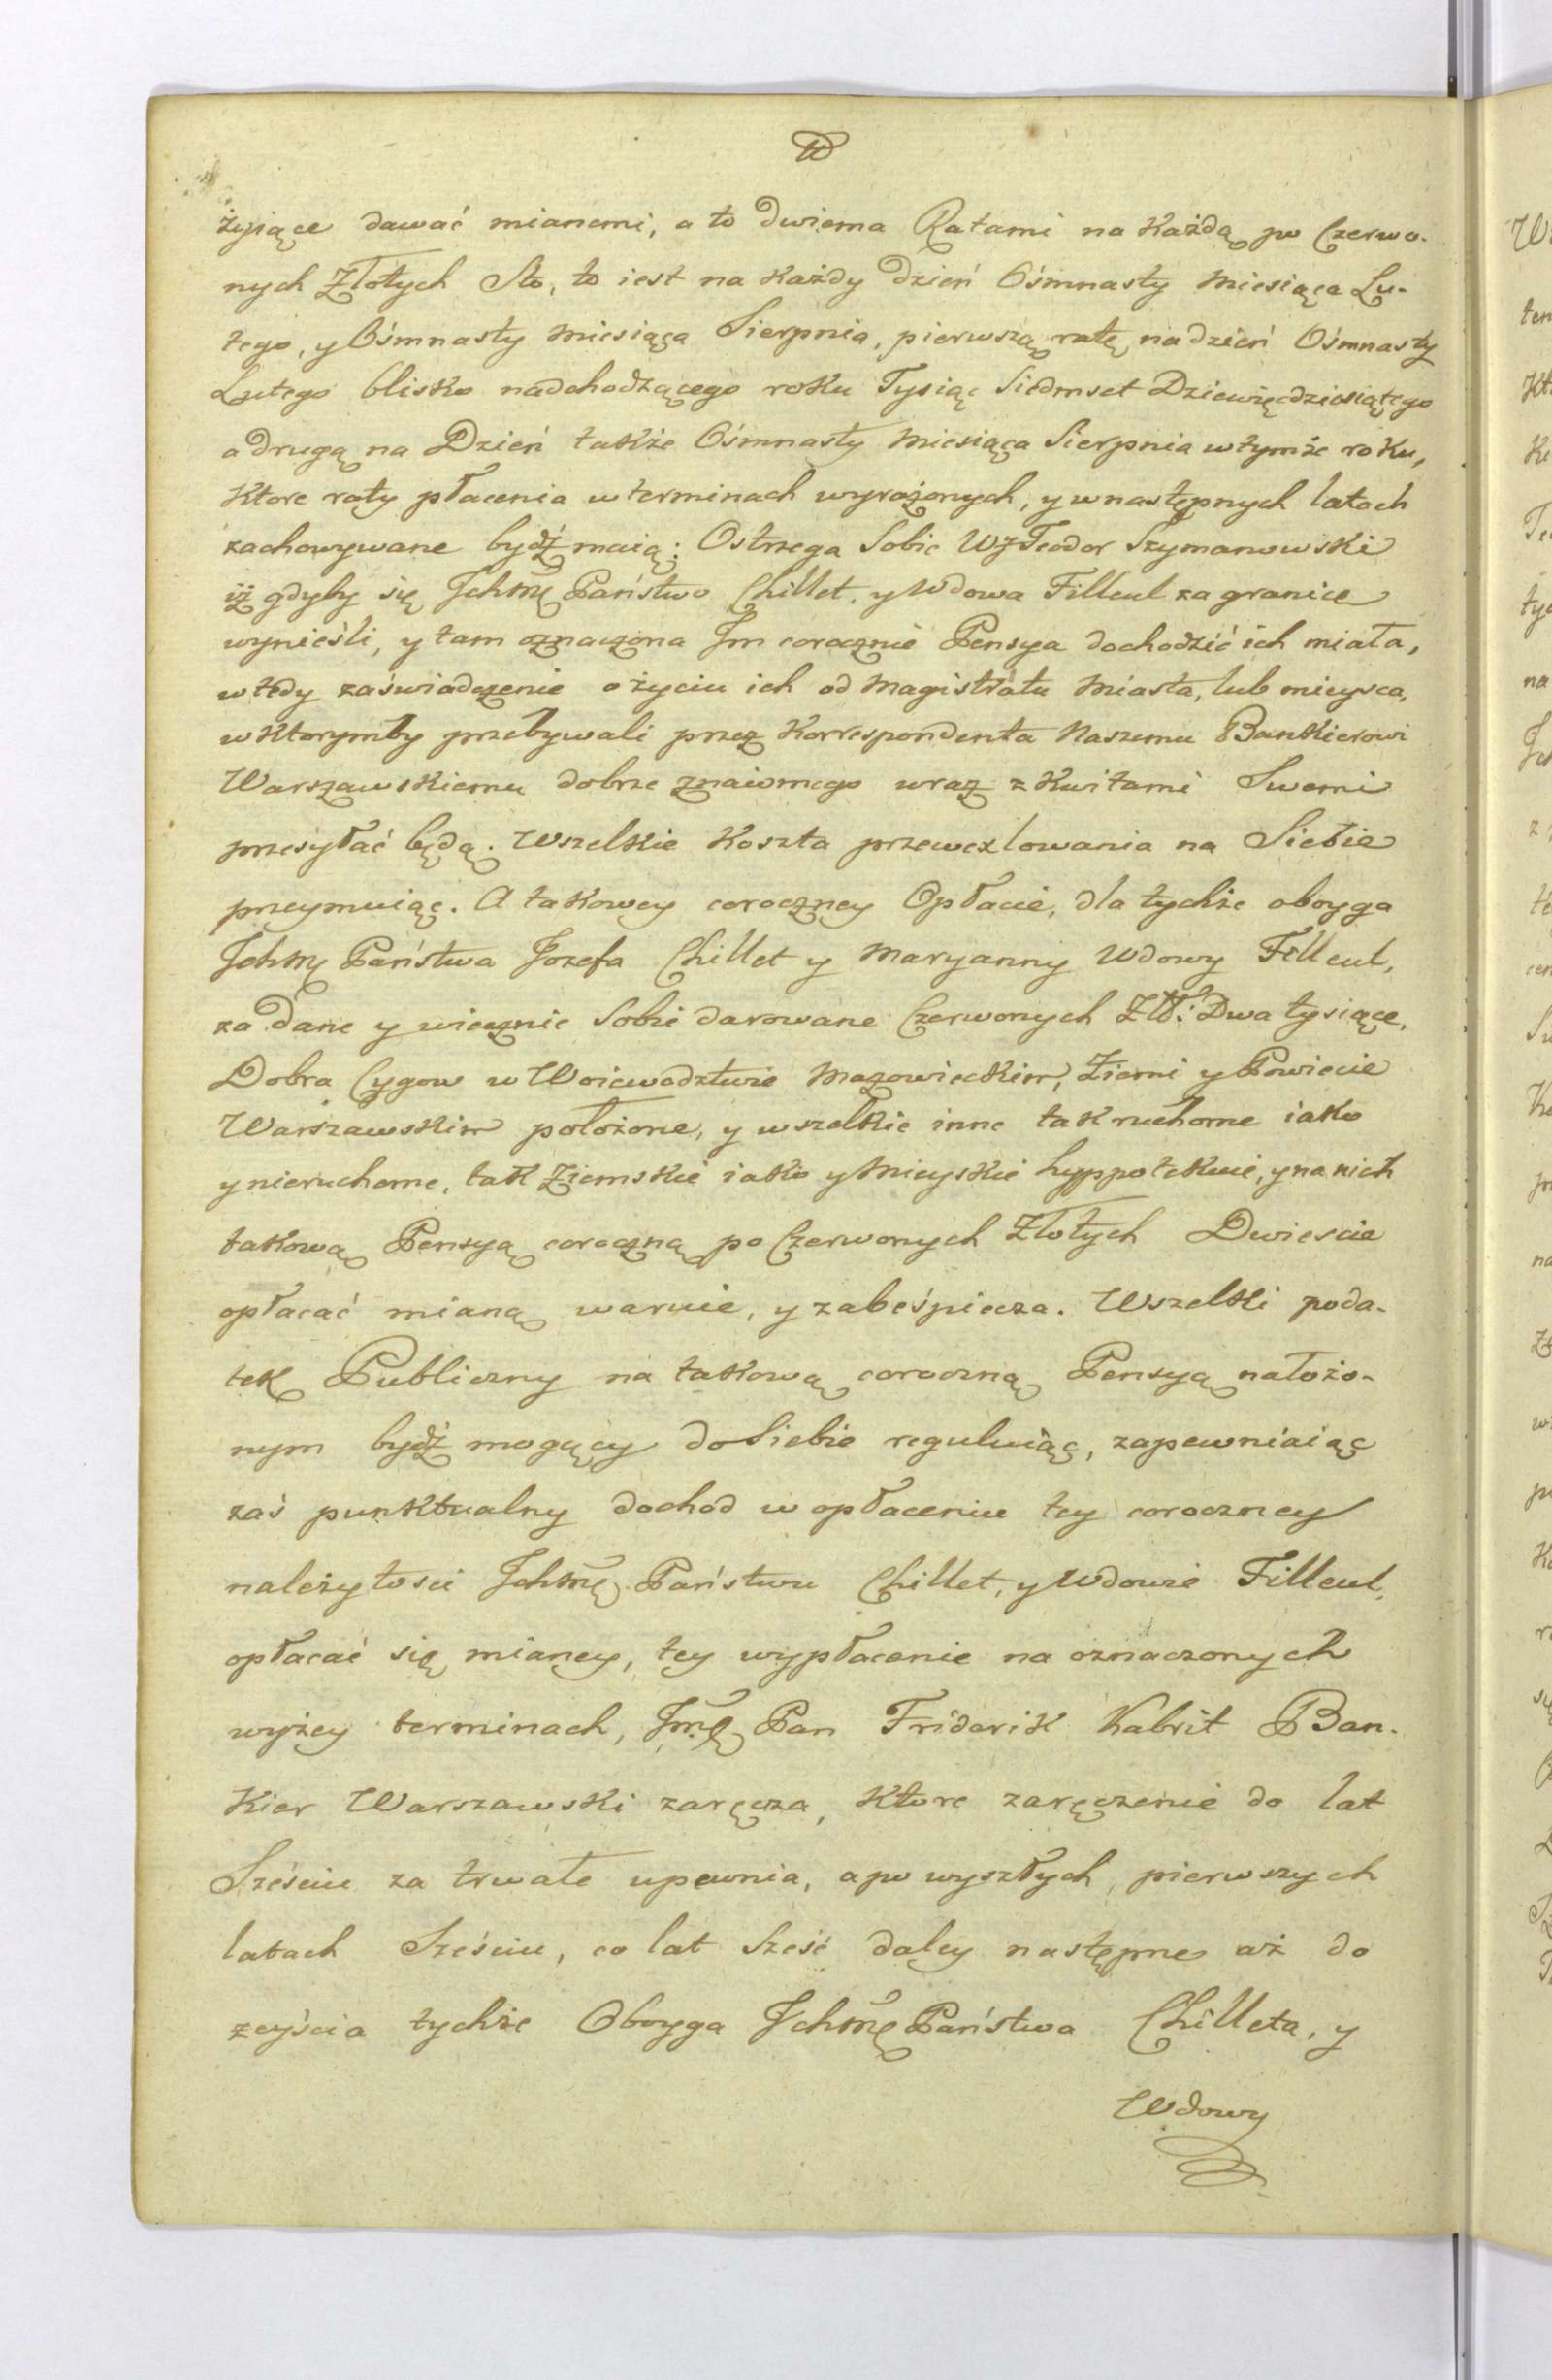 żyiące dawać mianemi, a to dwiema Ratami na Każdą po Czerwo-
nych Złotych Sto, to iest na Każdy dzień Ośmnasty Miesiąca Lu-
tego, y Ośmnasty Miesiąca Sierpnia, pierwszą ratę na dzień Ośmnasty
Lutego blisko nadchodzącego roku Tysiąc Siedmset Dziewięcdziesiątego
a drugą na Dzień także Ośmnasty Miesiąca Sierpnia w tymże roku,
Ktore raty płacenia w terminach wyrażonych, y w następnych latach
zachowywane bydź maią: Ostrzega Sobie WJ Teodor Szymanowski
iż gdyby się Jchmę Państwo Chillet, y Wdowa Filleul za granice
wynieśli, y tam oznaczona Im corocznie Pensya dochodzić ich miała,
wtedy zaświadczenie o życiu ich od Magistratu Miasta, lub mieysca,
w Ktorymby przebywali przez Korrespondenta Naszemu Bankierowi
Warszawskiemu dobrze znaiomego wraz z Kwitami Swemi
przesyłać będą. Wszelkie Koszta przewexlowania na Siebie
przeymuiąc. A takowey coroczney Opłacie, dla tychże oboyga
Jchmę Państwa Jozefa Chillet y Maryanny Wdowy Filleul,
za dane y wiecznie Sobie darowane Czerwonych Złł: Dwa tysiące,
Dobra Cygow w Woiewodztwie Mazowieckim, Ziemi y Powiecie
Warszawskim położone, y wszelkie inne tak ruchome iako
y nieruchome, tak Ziemskie iako y Mieyskie hyppotekuie, y na nich
takową Pensyą coroczną po Czerwonych Złotych Dwieście
opłacać mianą waruie, y zabeśpiecza. Wszelki poda-
tek Publiczny na takową coroczną Pensyą nałożo-
nym bydź mogący do Siebie reguluiąc, zapewniaiąc
zaś punktualny dochod w opłaceniu tey coroczney
należytosci Jchmę Państwu Chillet, y Wdowie Filleul,
opłacać się mianey, tey wypłacenie na oznaczonych
wyżey terminach, Jmę Pan Friderik Kabrit Ban-
Kier Warszawski zaręcza, Ktore zaręczenie do lat
Sześciu za trwałe upewnia, a po wyszłych pierwszych
latach Sześciu, co lat Sześć daley następne aż do
zeyścia tychże Oboyga Jchmę Państwa Chilleta, y
Wdowy